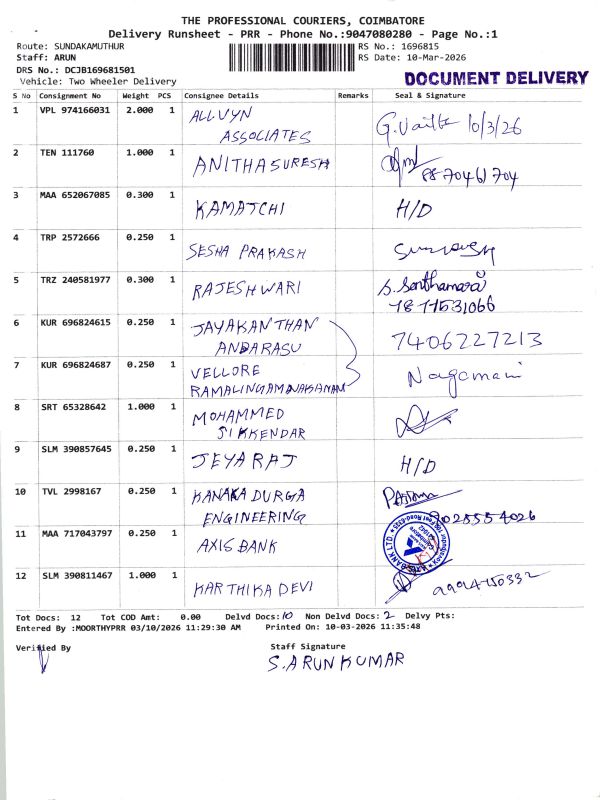 THE PROFESSIONAL COURIERS, COIMBATORE
Delivery Runsheet - PRR - Phone No.:9047080280 - Page No.:1
Route: SUNDAKAMUTHUR RS No.: 1696815
Staff: ARUN RS Date: 10-Mar-2026
DRS No.: DCJB169681501
Vehicle: Two Wheeler Delivery DOCUMENT DELIVERY
S No Consignment No Weight PCS Consignee Details Remarks Seal & Signature
1 VPL 974166031 2.000 1 ALLVYN
ASSOCIATES 10/3/26
2 TEN 111760 1.000 1 ANITHASURESH
3 MAA 652067085 0.300 1 KAMATCHI H/D
4 TRP 2572666 0.250 1 SESHA PRAKASH
5 TRZ 240581977 0.300 1 RAJESHWARI
6 KUR 696824615 0.250 1 JAYAKANTHAN
ANBARASU 7406227213
7 KUR 696824687 0.250 1 VELLORE Nagamani
8 SRT 65328642 1.000 1 MOHAMMED
SIKKENDAR
9 SLM 390857645 0.250 1 JEYARAJ H/D
10 TVL 2998167 0.250 1 KANAKA DURGA
ENGINEERING
11 MAA 717043797 0.250 1 AXIS BANK
12 SLM 390811467 1.000 1 KARTHIKA DEVI
Tot Docs: 12 Tot COD Amt: 0.00 Delvd Docs: 10 Non Delvd Docs: 2 Delvy Pts:
Entered By :MOORTHYPRR 03/10/2026 11:29:30 AM Printed On: 10-03-2026 11:35:48
Verified By Staff Signature
S.ARUNKUMAR